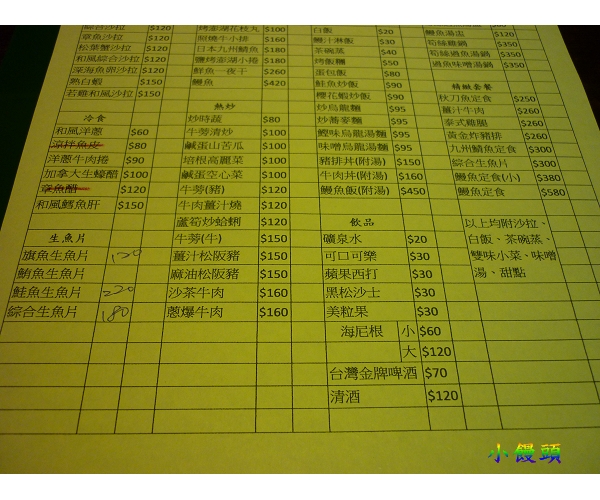 綜合沙拉 $120
章魚沙拉 $120
松葉蟹沙拉 $120
和風綜合沙拉 $120
深海魚卵沙拉 $120
熱白蝦 $150
若雞和風沙拉 $150
冷食
和風洋蔥 $60
涼拌魚皮 $80
洋蔥牛肉捲 $90
加拿大生蠔醋 $100
章魚醋 $120
和風鱈魚肝 $150
生魚片
旗魚生魚片 120
鮪魚生魚片
鮭魚生魚片 220
綜合生魚片 180
烤澎湖花枝丸 $100
照燒牛小排 $160
日本九州鯖魚 $180
鹽烤澎湖小捲 $180
鮮魚一夜干 $260
鰻魚 $420
熱炒
炒時蔬 $80
牛蒡清炒 $100
鹹蛋山苦瓜 $100
培根高麗菜 $100
鹹蛋空心菜 $100
牛蒡(豬) $120
牛肉薑汁燒 $120
蘆筍炒蛤蜊 $120
牛蒡(牛) $150
薑汁松阪豬 $150
麻油松阪豬 $150
沙茶牛肉 $160
蔥爆牛肉 $160
白飯 $20
鰻汁淋飯 $30
茶碗蒸 $40
烤飯糰 $50
蛋包飯 $80
鮭魚炒飯 $90
櫻花蝦炒飯 $90
炒烏龍麵 $95
炒蕎麥麵 $95
鰹味烏龍湯麵 $95
味噌烏龍湯麵 $95
豬排丼(附湯) $150
牛肉丼(附湯) $160
鰻魚飯(附湯) $450
飲品
礦泉水 $20
可口可樂 $30
蘋果西打 $30
黑松沙士 $30
美粒果 $30
海尼根 小 $60
大 $120
台灣金牌啤酒 $70
清酒 $120
鱻魚湯盅 $120
荀絲雞鍋 $350
荀絲過魚湯鍋 $350
過魚味噌湯鍋 $350
精緻套餐
秋刀魚定食 $250
薑汁牛肉 $260
泰式雞腿 $260
黃金炸豬排 $260
九州鯖魚定食 $300
綜合生魚片 $300
鰻魚定食(小) $380
鰻魚定食 $580
以上均附沙拉、
白飯、茶碗蒸、
雙味小菜、味噌
湯、甜點
小饅頭